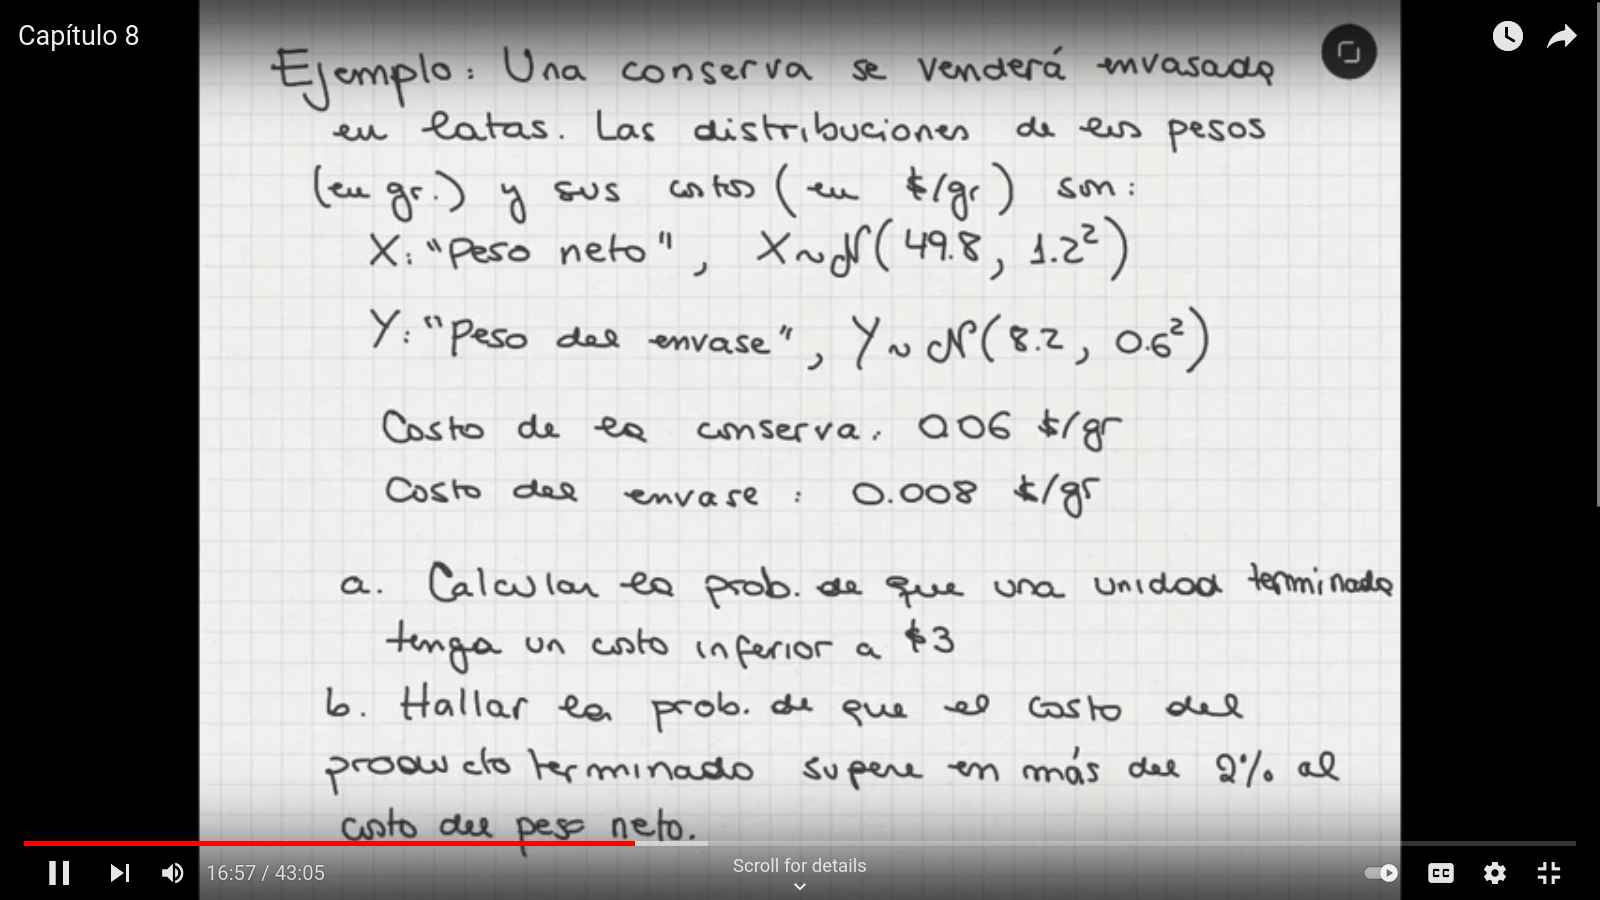 Capítulo 8
Ejemplo: Una conserva se venderá envasada
en latas. Las distribuciones de los pesos
(en gr.) y sus costos (en $/gr) son:
X: "Peso neto", X~N(49.8, 1.2²)
Y: "Peso del envase", Y~N(8.2, 0.6²)
Costo de la conserva: 0.06 $/gr
Costo del envase: 0.008 $/gr
a. Calcular la prob. de que una unidad terminada
tenga un costo inferior a $3
b. Hallar la prob. de que el costo del
producto terminado supere en más del 2% al
costo del peso neto.
16:57 / 43:05
Scroll for details
CC